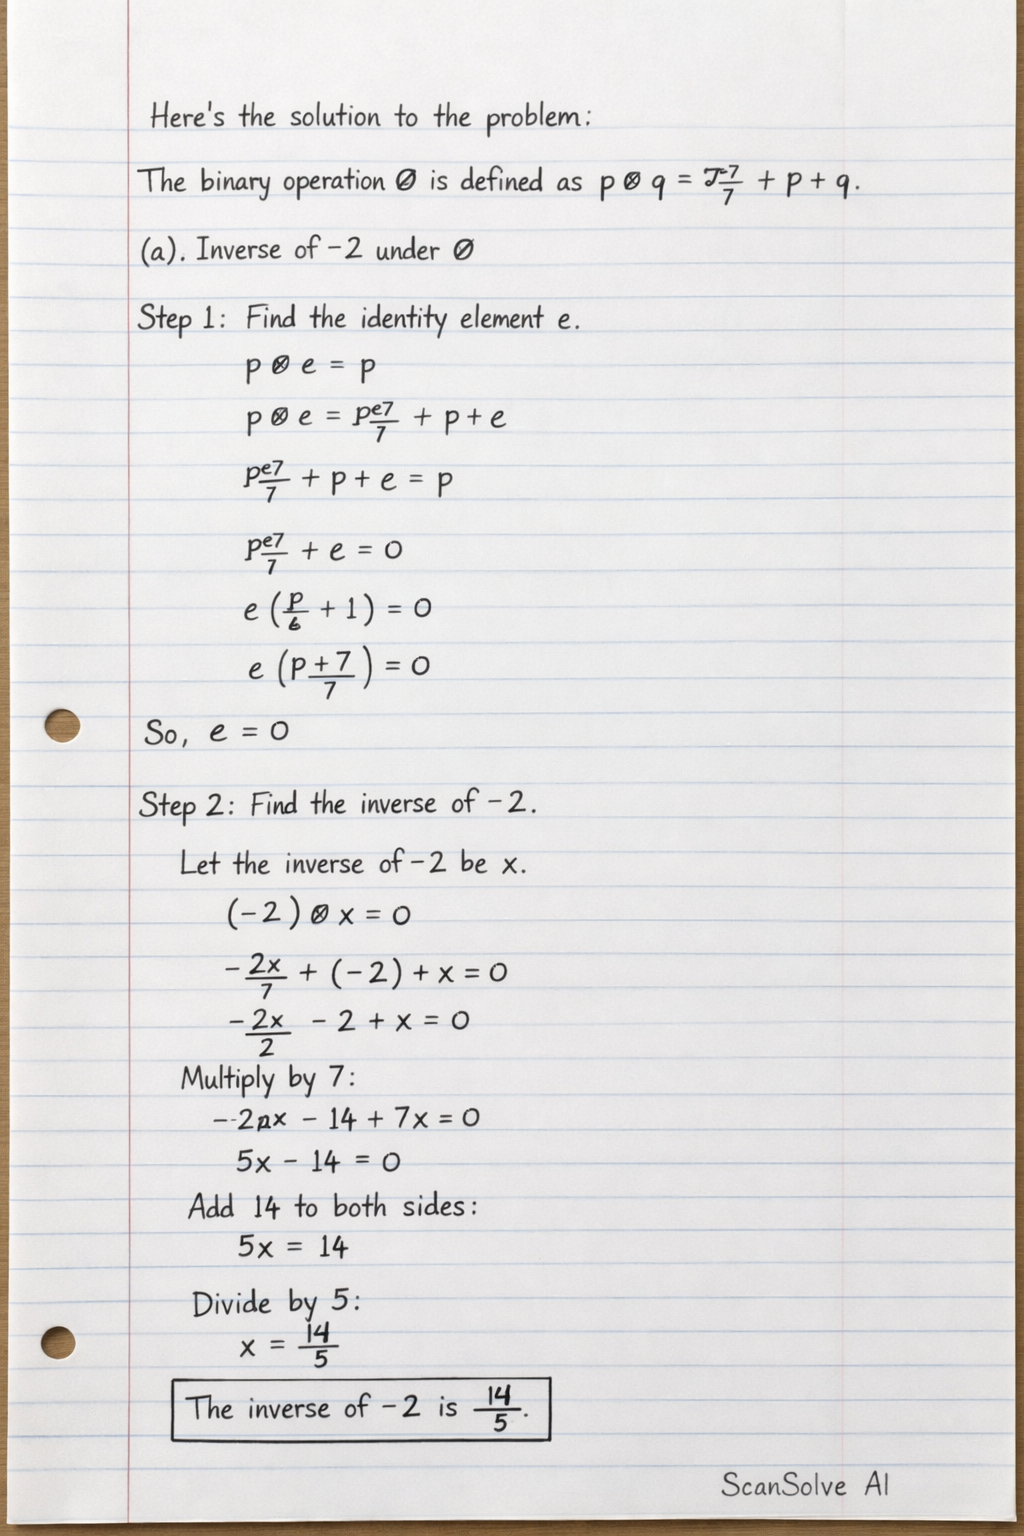 Here's the solution to the problem:
The binary operation Ø is defined as p ⊗ q = 7-7/7 + p + q.
(a). Inverse of -2 under Ø
Step 1: Find the identity element e.
p ⊗ e = p
p ⊗ e = pe7/7 + p + e
pe7/7 + p + e = p
pe7/7 + e = 0
e (p/6 + 1) = 0
e (p + 7/7) = 0
So, e = 0
Step 2: Find the inverse of -2.
Let the inverse of -2 be x.
(-2) ⊗ x = 0
- 2x/7 + (-2) + x = 0
- 2x/2 - 2 + x = 0
Multiply by 7:
--2px - 14 + 7x = 0
5x - 14 = 0
Add 14 to both sides:
5x = 14
Divide by 5:
x = 14/5
The inverse of -2 is 14/5.
ScanSolve AI